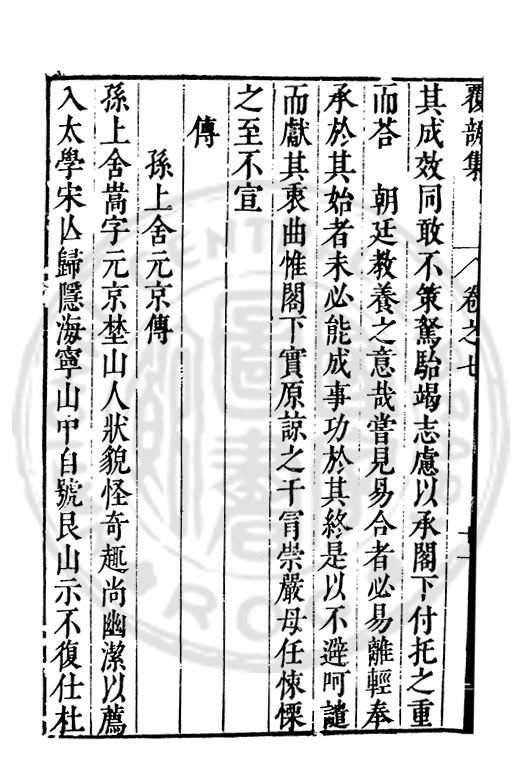 覆瓿集 卷之七 十一
其成效同敢不策駑駘竭志慮以承閣下付托之重
而荅 朝廷教養之意哉嘗見易合者必易離輕奉
承於其始者未必能成事功於其終是以不避呵譴
而獻其衷曲惟閣下實原諒之干冐崇嚴毋任悚慄
之至不宣
傳
孫上舍元京傳
孫上舍嵩字元京埜山人狀貌怪奇趣尚幽潔以薦
入太學宋亾歸隱海寧山中自號艮山示不復仕杜